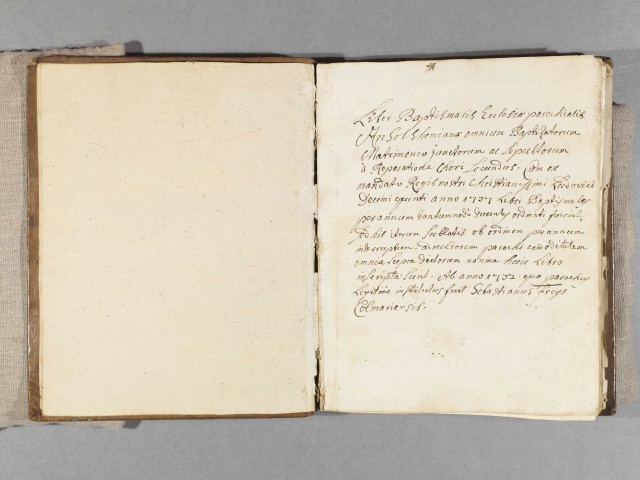 Liber Baptismatis Ecclesiæ parochialis
omnium Baptizatorum
Matrimonio junctorum ac Sepultorum
à Reparatione Chori Secundus. Cum ex
mandato Regis nostri Christianissimi Ludovici
Decimi quinti anno 1737 Libri Baptismales
per annum tantummodo durantes ordinati fuerint,
ob ordinem per annum
interruptum, parochi comoditatem
omnia supra dictorum nomina huic Libro
inscripta sunt. Ab anno 1732 quo parochus
Legitime institutus fuit Sebastianus Freys
Colmariensis.